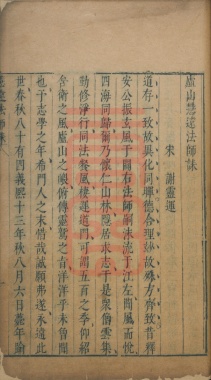 廬山慧遠法師誄
宋 謝靈運
道存一致故異化同暉德合理妙故殊方齊致昔釋
安公振玄風於關右法師嗣沫流於江左聞風而悅
四海同歸爾乃懷仁山林隱居求志于是衆僧雲集
勤修淨行同法餐風棲遲道門可謂五百之季仰紹
舍衛之風廬山之㟝俯傳靈鷲之旨洋洋乎未曾聞
也予志學之年希門人之末惜哉誠願弗遂永違此
世春秋八十有四義熙十三年秋八月六日薨年踰